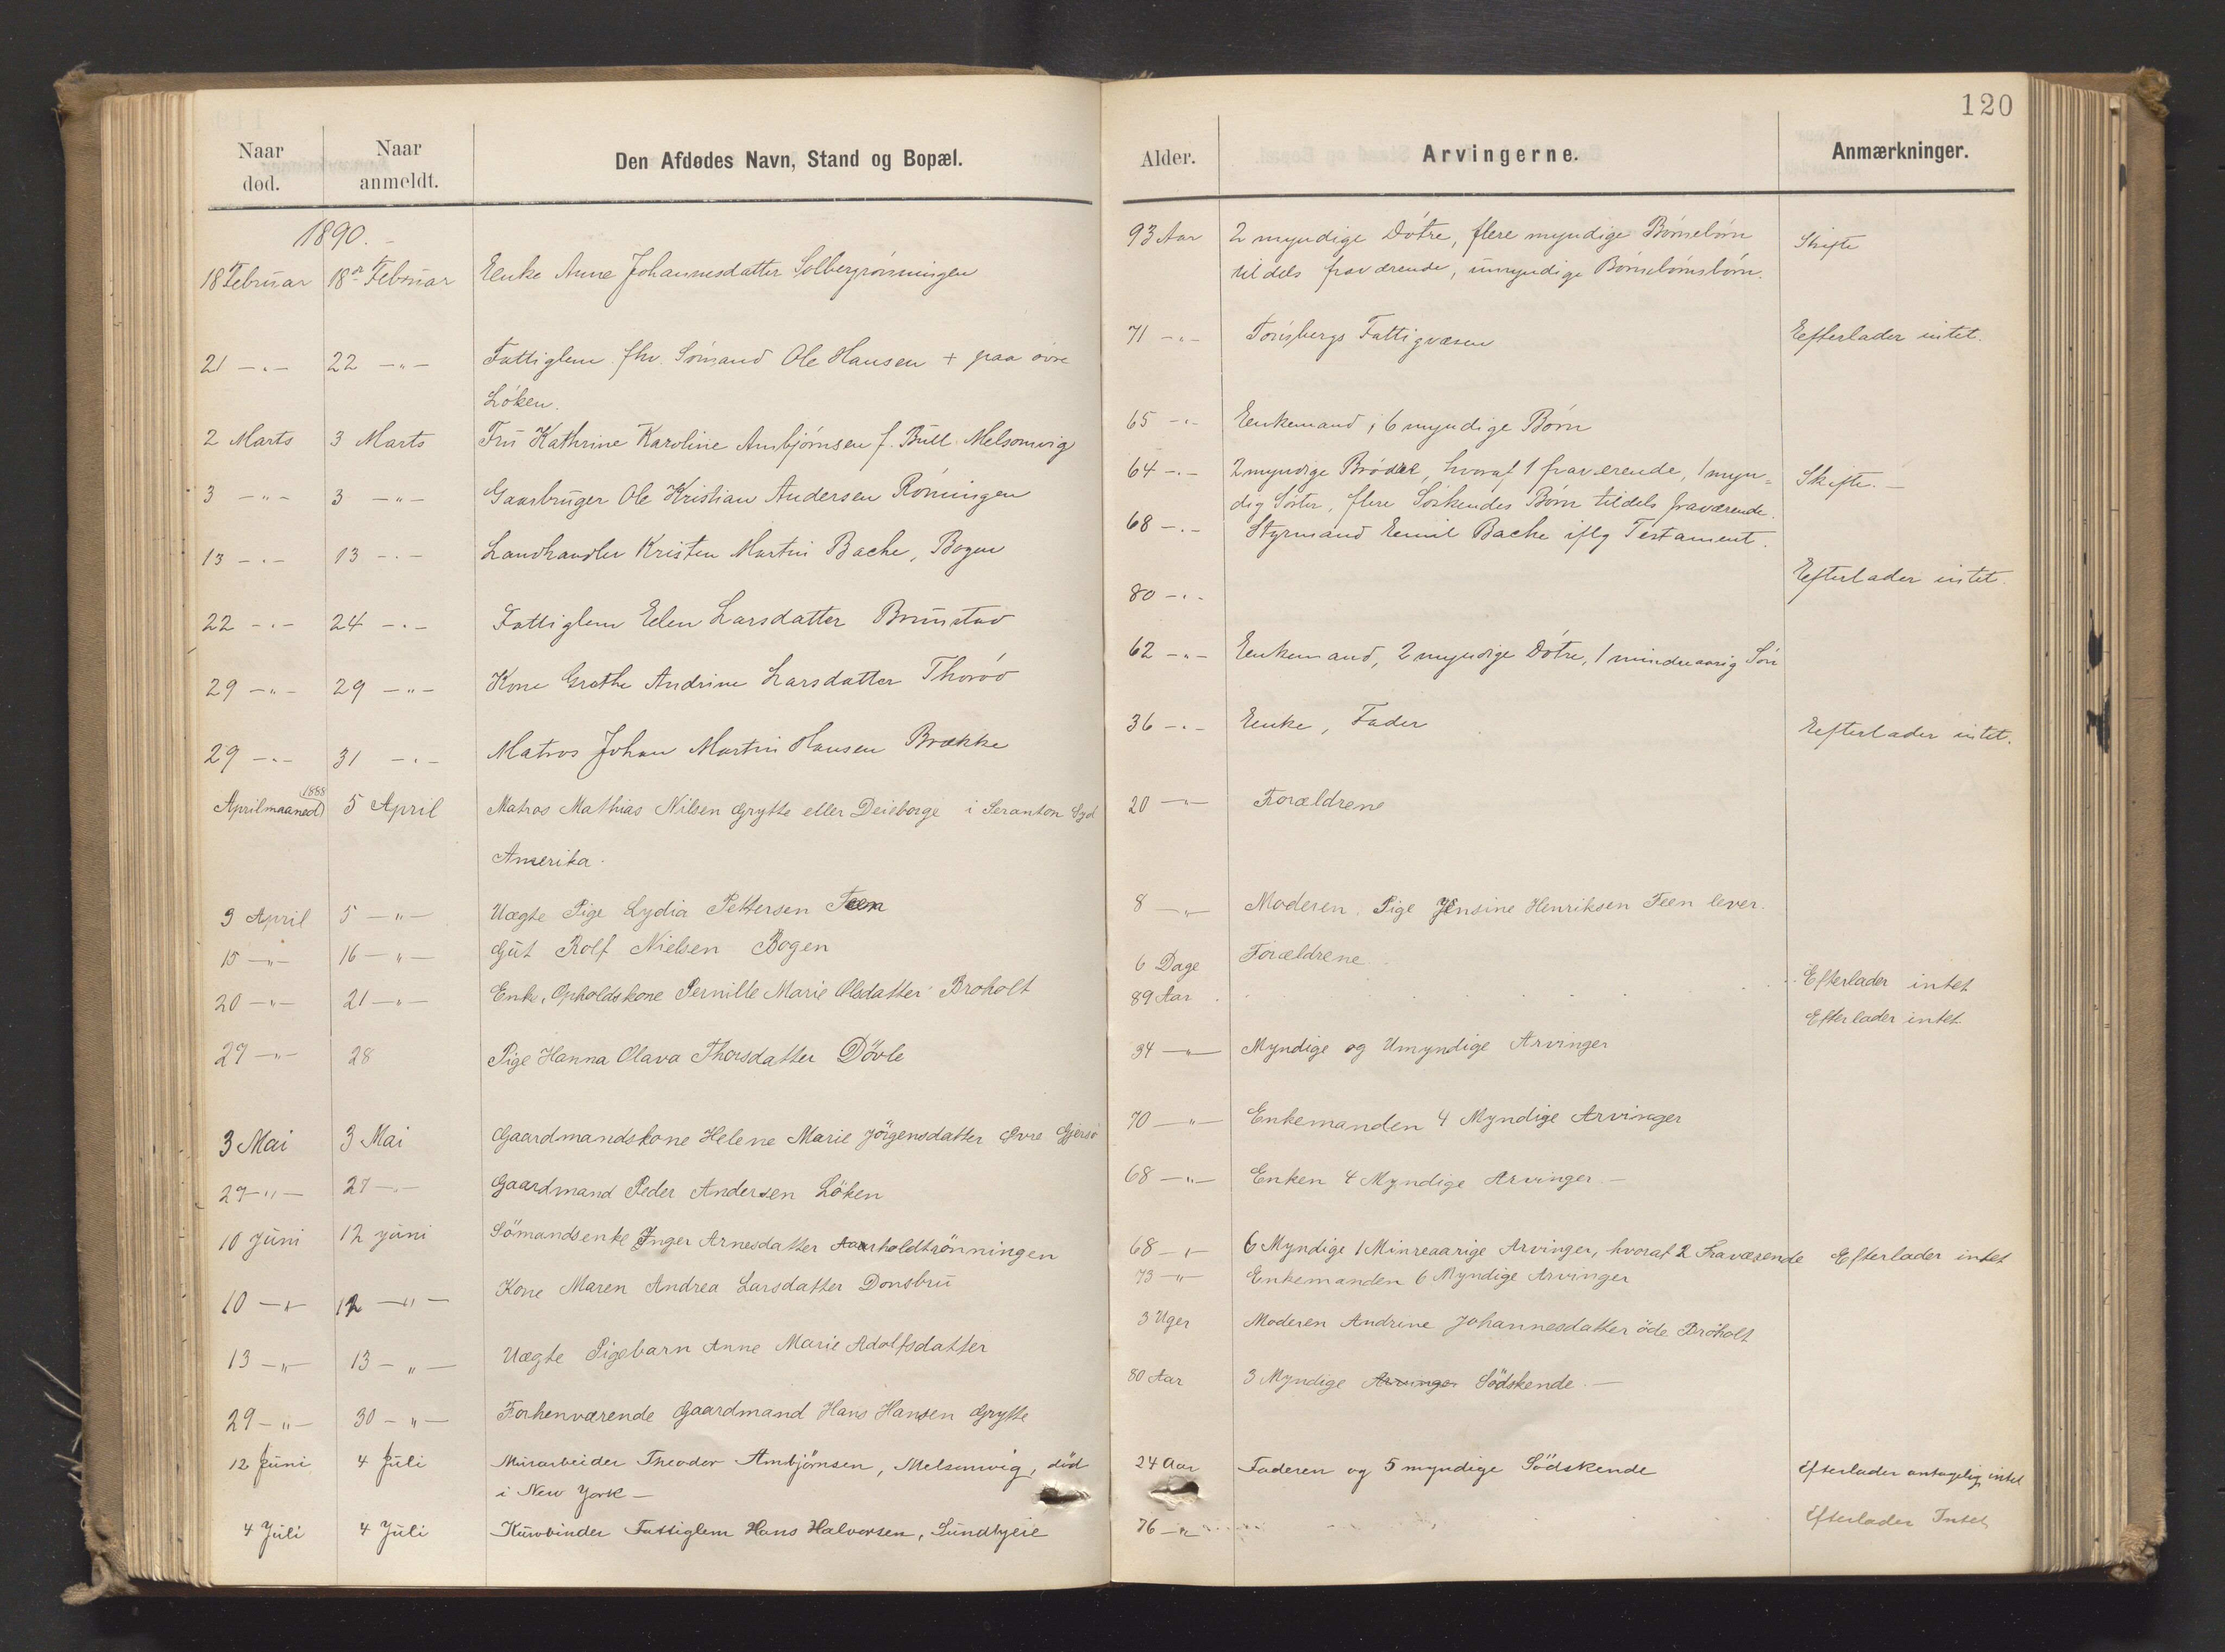 120
Naar død.
Naar anmeldt.
Den Afdødes Navn, Stand og Bopæl.
Alder.
Arvingerne.
Anmærkninger.
1890.
18 Februar 18de Februar Enke Anne Johannesdatter Solbergrönningen 93 Aar 2 myndige Døtre, flere myndige Børnebørn Skifte
tildels fraværende, umyndige Børnebørnsbørn.
21 -"- 22 -"- Fattiglem fhv. Sømand Ole Hansen + paa övre 71 -"- Tønsbergs Fattigvæsen Efterlader intet.
Löken.
2 Marts 3 Marts Fru Kathrine Karoline Ambjørnsen f. Bull. Melsomvig 65 -"- Enkemand; 6 myndige Børn
3 -"- 3 -"- Gaarbruger Ole Kristian Andersen Röningen 64 -"- 2 myndige Brødre, hvoraf 1 fraværende, 1 myn- Skifte.-
dig Søster, flere Søskendes Børn tildels fraværende.
13 -"- 13 -"- Landhandler Kristen Martin Bache, Bogen 68 -"- Styrmand Emil Bache iflg Testament.
22 -"- 24 -"- Fattiglem Elen Larsdatter Brunstad 80 -"- Efterlader intet.
29 -"- 29 -"- Kone Grethe Andrine Larsdatter Thoröd 62 -"- Enkemand, 2 myndige Døtre, 1 minderaarig Søn
29 -"- 31 -"- Matros Johan Martin Hansen Brække 36 -"- Enke, Fader Efterlader intet.
Aprilmaaned 1888 5 April Matros Mathias Nilsen Grytte eller Deieborge i Seranton Syd 20 -"- Forældrene
Amerika.
3 April 5 -"- Uægte Pige Lydia Pettersen Teen 8 -"- Moderen. Pige Jensine Henriksen Teen lever.
15 -"- 16 -"- Gut Rolf Nielsen Bogen 6 Dage Forældrene
20 -"- 21 -"- Enke, Opholdskone Pernille Marie Olsdatter Broholt 89 Aar Efterlader intet
Efterlader intet
27 -"- 28 Pige Hanna Olava Thorsdatter Dövle 34 -"- Myndige og Umyndige Arvinger
3 Mai 3 Mai Gaardmandskone Helene Marie Jörgensdatter Øvre Gjersö 70 -"- Enkemanden 4 Myndige Arvinger
27 -"- 27 -"- Gaardmand Peder Andersen Löken 68 -"- Enken 4 Myndige Arvinger.-
10 Juni 12 juni Sömandsenke Inger Arnesdatter Aarholdtrönningen 68 -"- 6 Myndige 1 Minreaarige Arvinger, hvoraf 2 Fraværende Efterlader intet
10 -"- 12 -"- Kone Maren Andrea Larsdatter Donsbru 73 -"- Enkemanden 6 Myndige Arvinger
13 -"- 13 -"- Uægte Pigebarn Anne Marie Adolfsdatter 3 Uger Moderen Andrine Johannesdatter öde Bröholt
29 -"- 30 -"- Forhenværende Gaardmand Hans Hansen Grytte 80 Aar 3 Myndige Arvinger Södskende.-
12 Juni 4 Juli Murarbeider Theodor Ambjörnsen, Melsomvig, död 24 Aar Faderen og 5 myndige Södskende Efterlader antagelig intet
i New York-
4 Juli 4 Juli Kurvbinder Fattiglem Hans Halvorsen, Sundbyeie 76 -"- Efterlader Intet